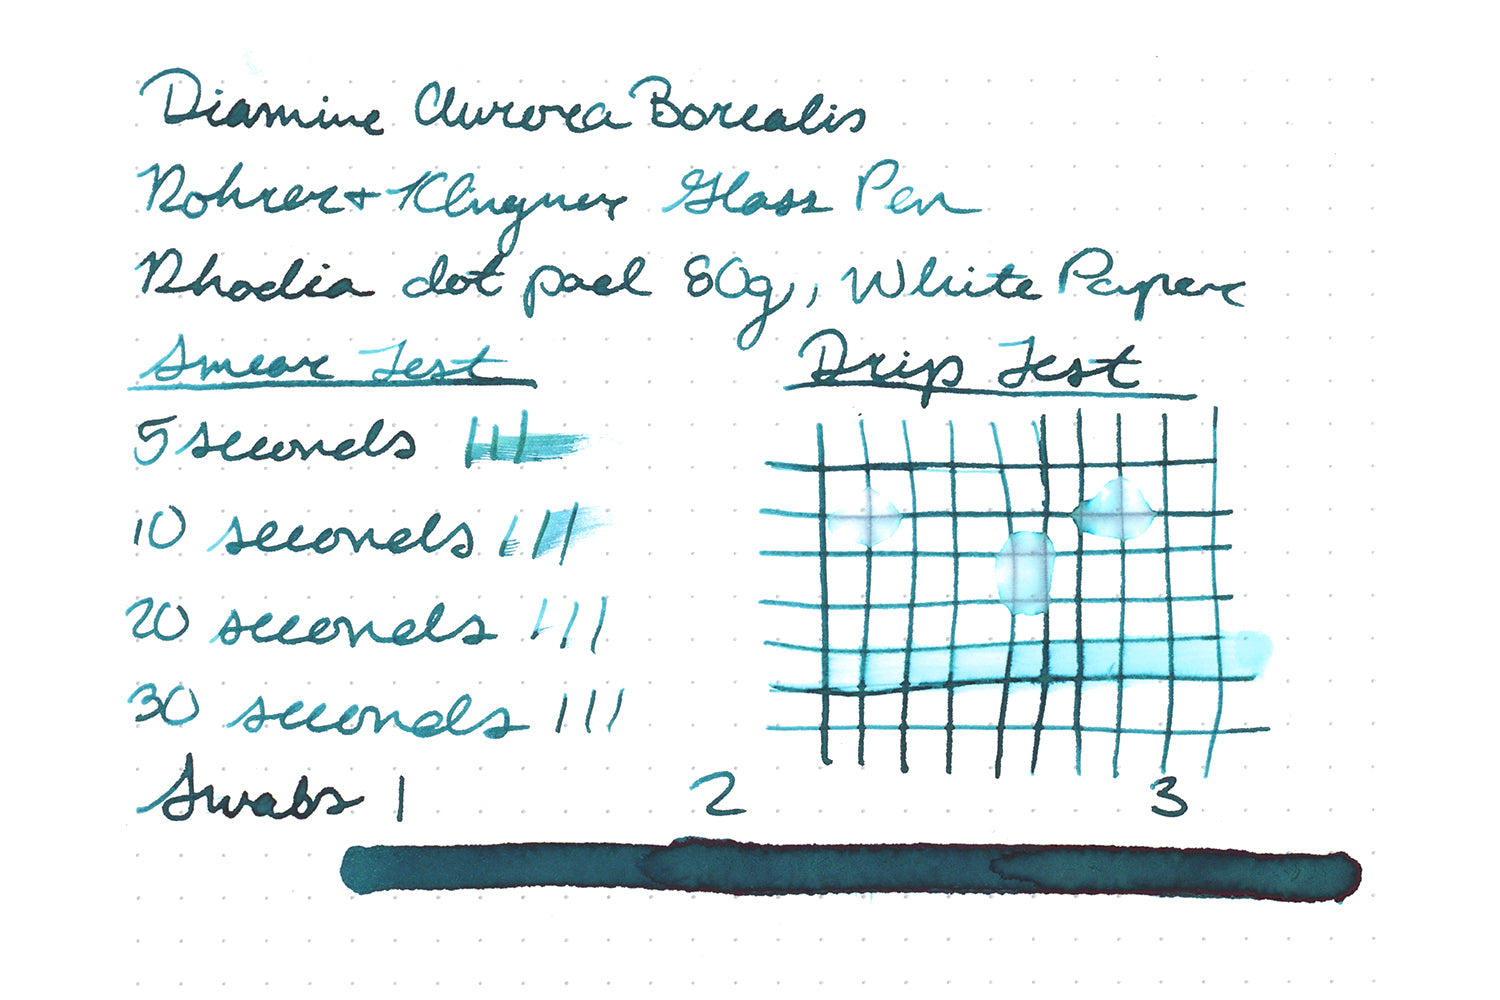 Diamine Aurora Borealis
Rohrer + Klingner Glass Pen
Rhodia dot pad 80g, White Paper
Smear Test
Drip Test
5 seconds
10 seconds
20 seconds
30 seconds
Swabs 1 2 3